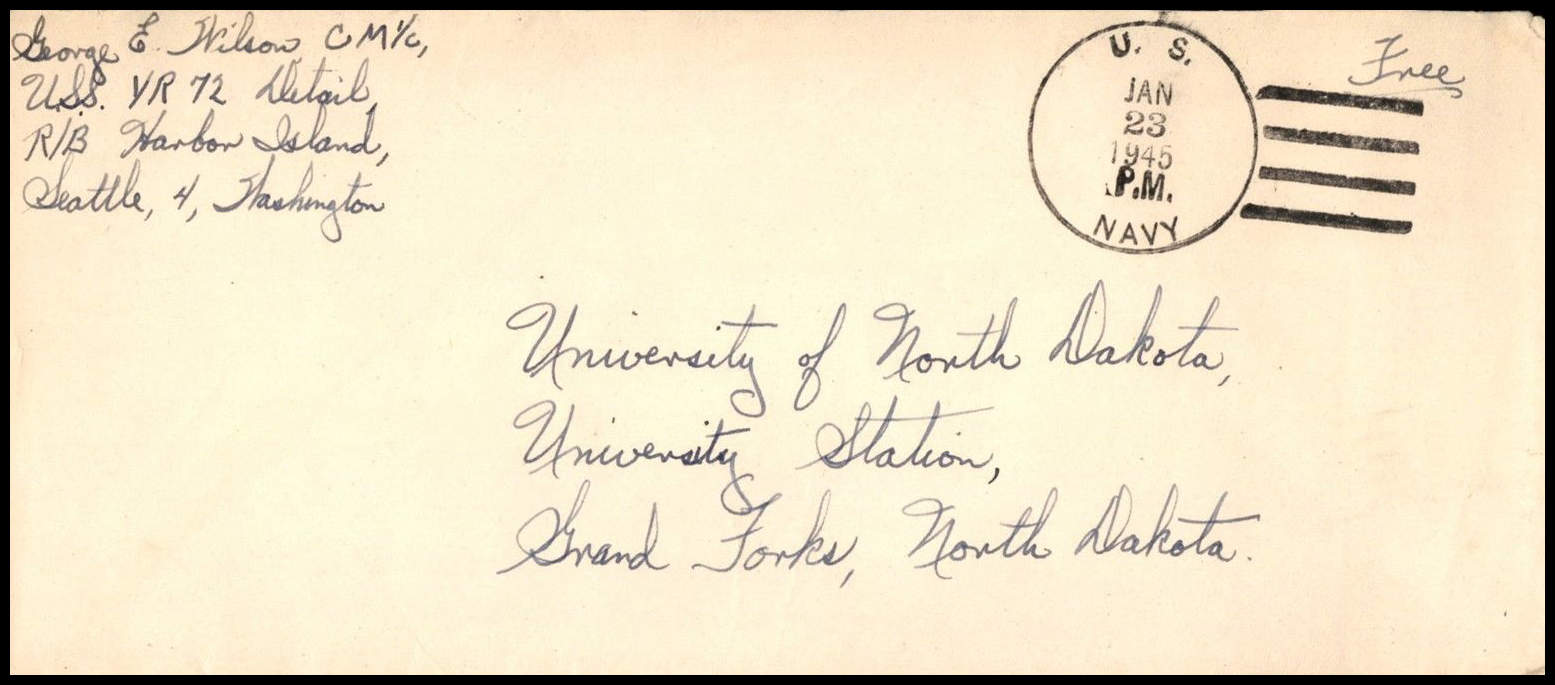 George E. Wilson CM1/c,
U.S.S. YR 72 Detail,
R/B Harbor Island,
Seattle, 4, Washington
U. S.
JAN
23
1945
P.M.
NAVY
Free
University of North Dakota,
University Station,
Grand Forks, North Dakota.